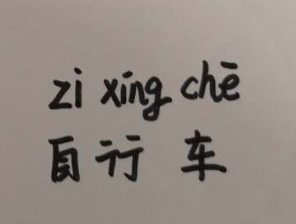 zi xíng chē
自行车